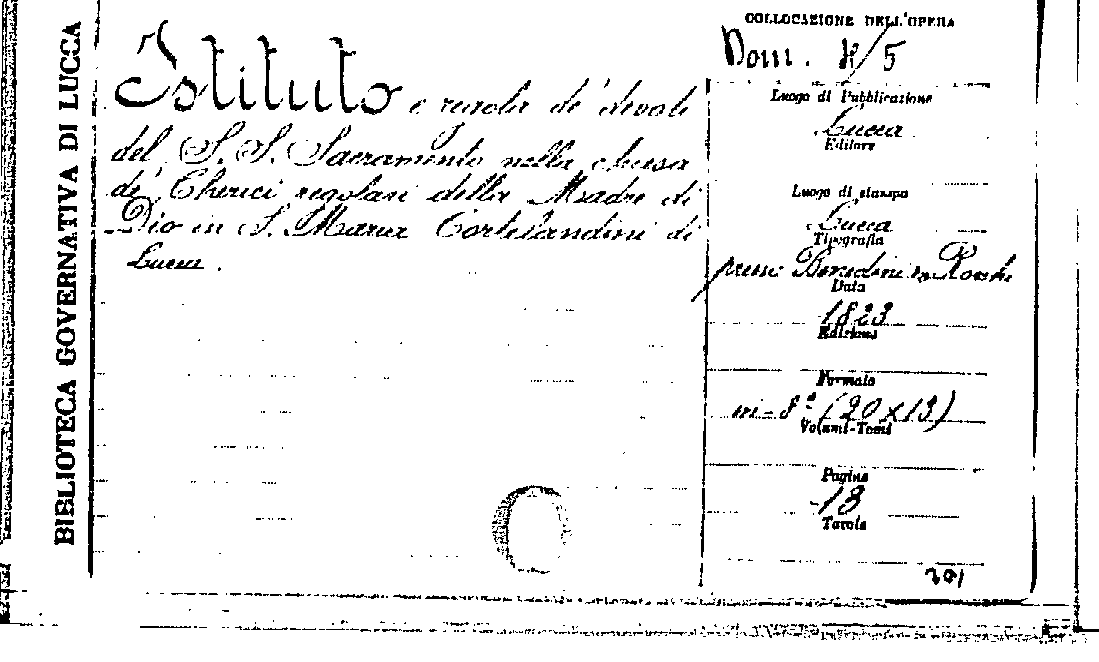 BIBLIOTECA GOVERNATIVA DI LUCCA
Istituto e regola de' devoti
del S. S. Sacramento nella chiesa
de' Cherici regolari della Madre di
Dio in S. Maria Cortelandini di
Lucca.
COLLOCAZIONE DELL'OPERA
Dom. K/5
Luogo di Pubblicazione
Lucca
Editore
Luogo di stampa
Lucca
Tipografia
presso Benedini e Rocchi
Data
1823
Edizione
Formato
in-8º (20x13)
Volumi-Tomi
Pagine
18
Tavole
201